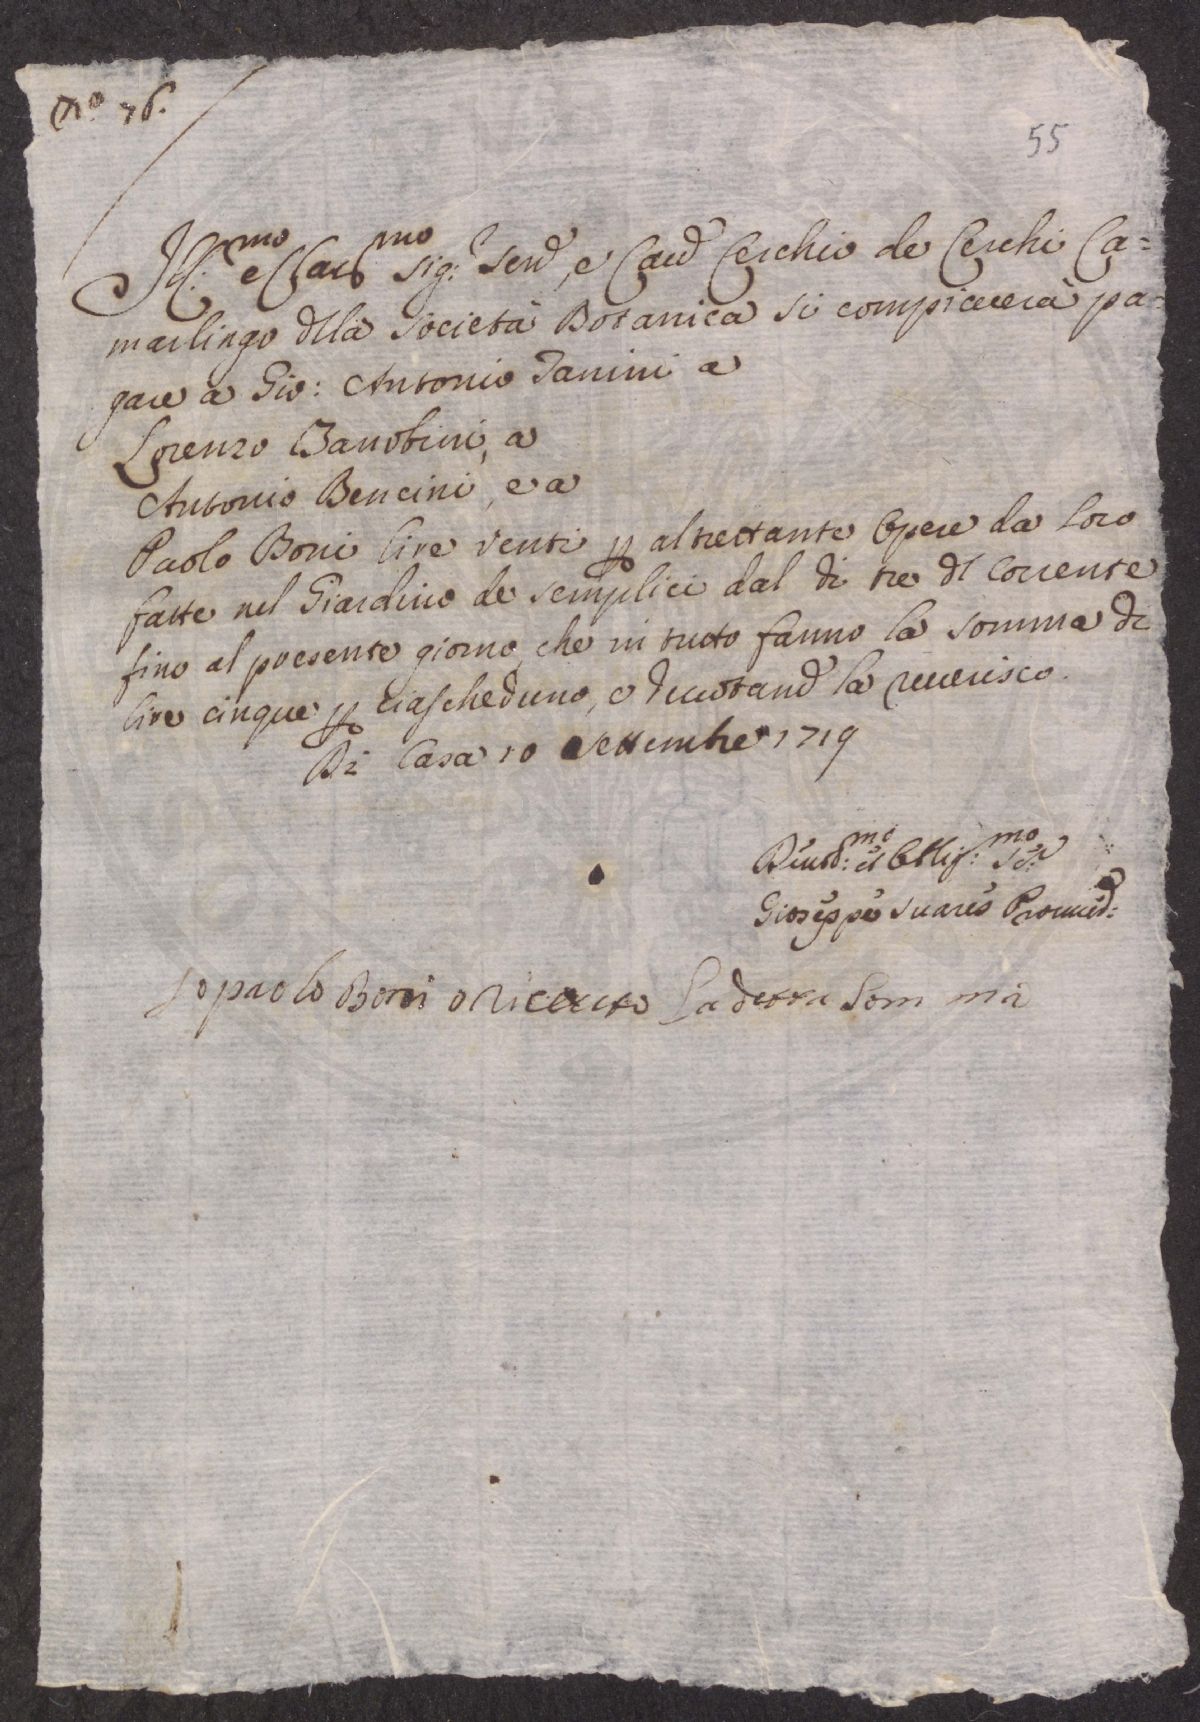 N.º 76.
55
Ill:mo e Clar:mo Sig:r Sen:e, e Cav:e Cerchio de Cerchi Ca=
marlingo dlla Società Botanica si compiacerà pa=
gare a Gio: Antonio Tanini a
Lorenzo Zanobini, a
Antonio Bencini, e a
Paolo Boni lire venti p altrettante Opere da loro
fatte nel Giardino de semplici dal di tre dl corrente
fino al presente giorno, che in tutto fanno la somma di
lire cinque p ciascheduno, e devotand. la reverisco.
Di Casa 10 Settembre 1719
Devot:mo et Obblig:mo Se:r
Gioseppe Suares Proved:e
Io paolo Boni o riceuto La detta Som ma